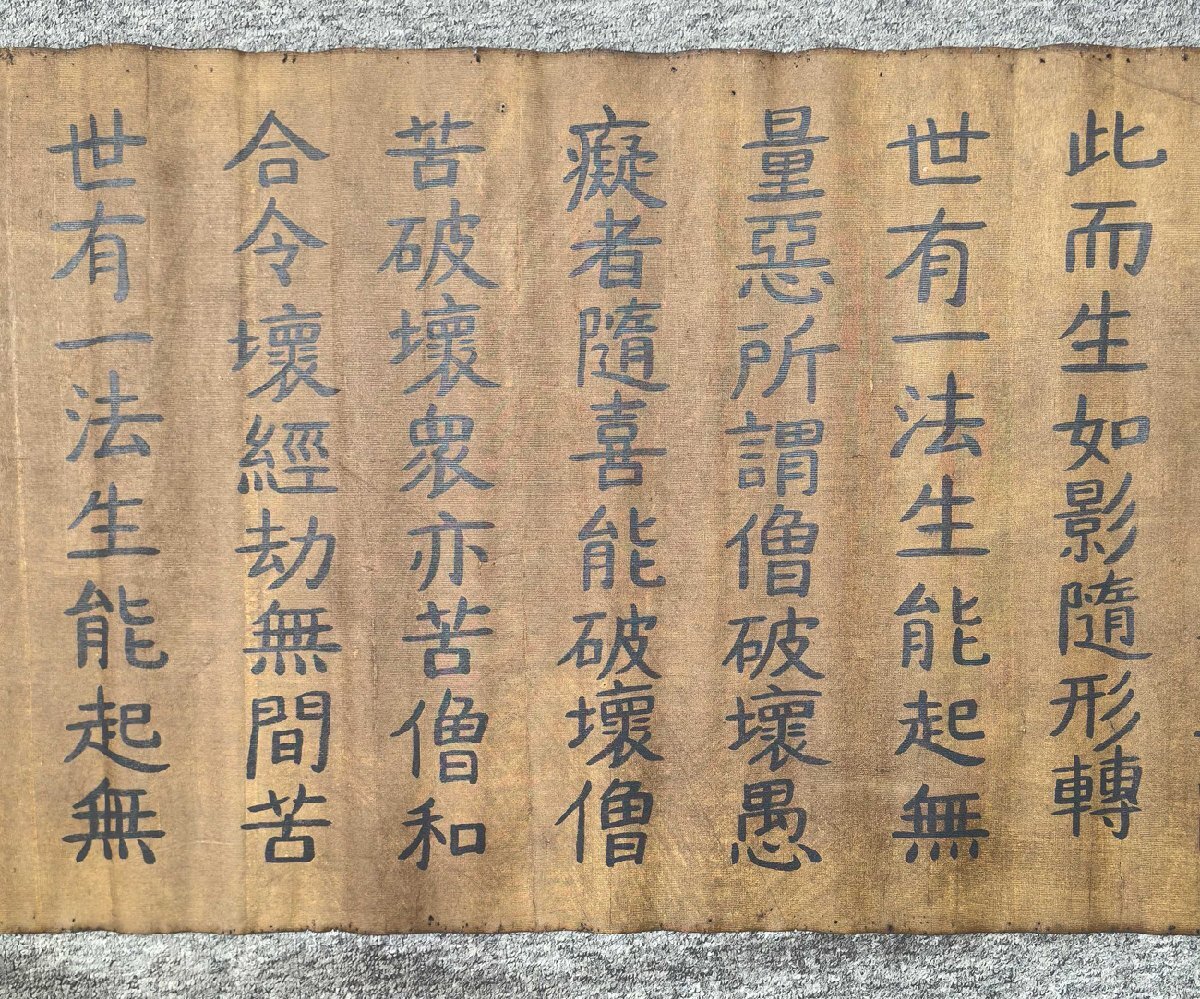 此而生如影隨形轉
世有一法生能起無
量惡所謂僧破壞愚
癡者隨喜能破壞僧
苦破壞衆亦苦僧和
合令壞經劫無間苦
世有一法生能起無